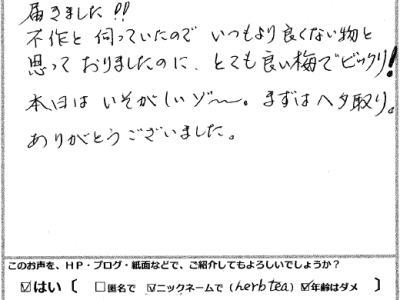 届きました!!
不作と伺っていたので いつもより良くない物と
思って おりましたのに、とても良い梅でビックリ!
本日は いそがしいゾ〜〜。まずはヘタ取り。
ありがとうございました。
このお声を、HP・ブログ・紙面などで、ご紹介してもよろしいでしょうか?
☑はい〔 □匿名で ☑ニックネームで(herb tea) ☑年齢はダメ 〕